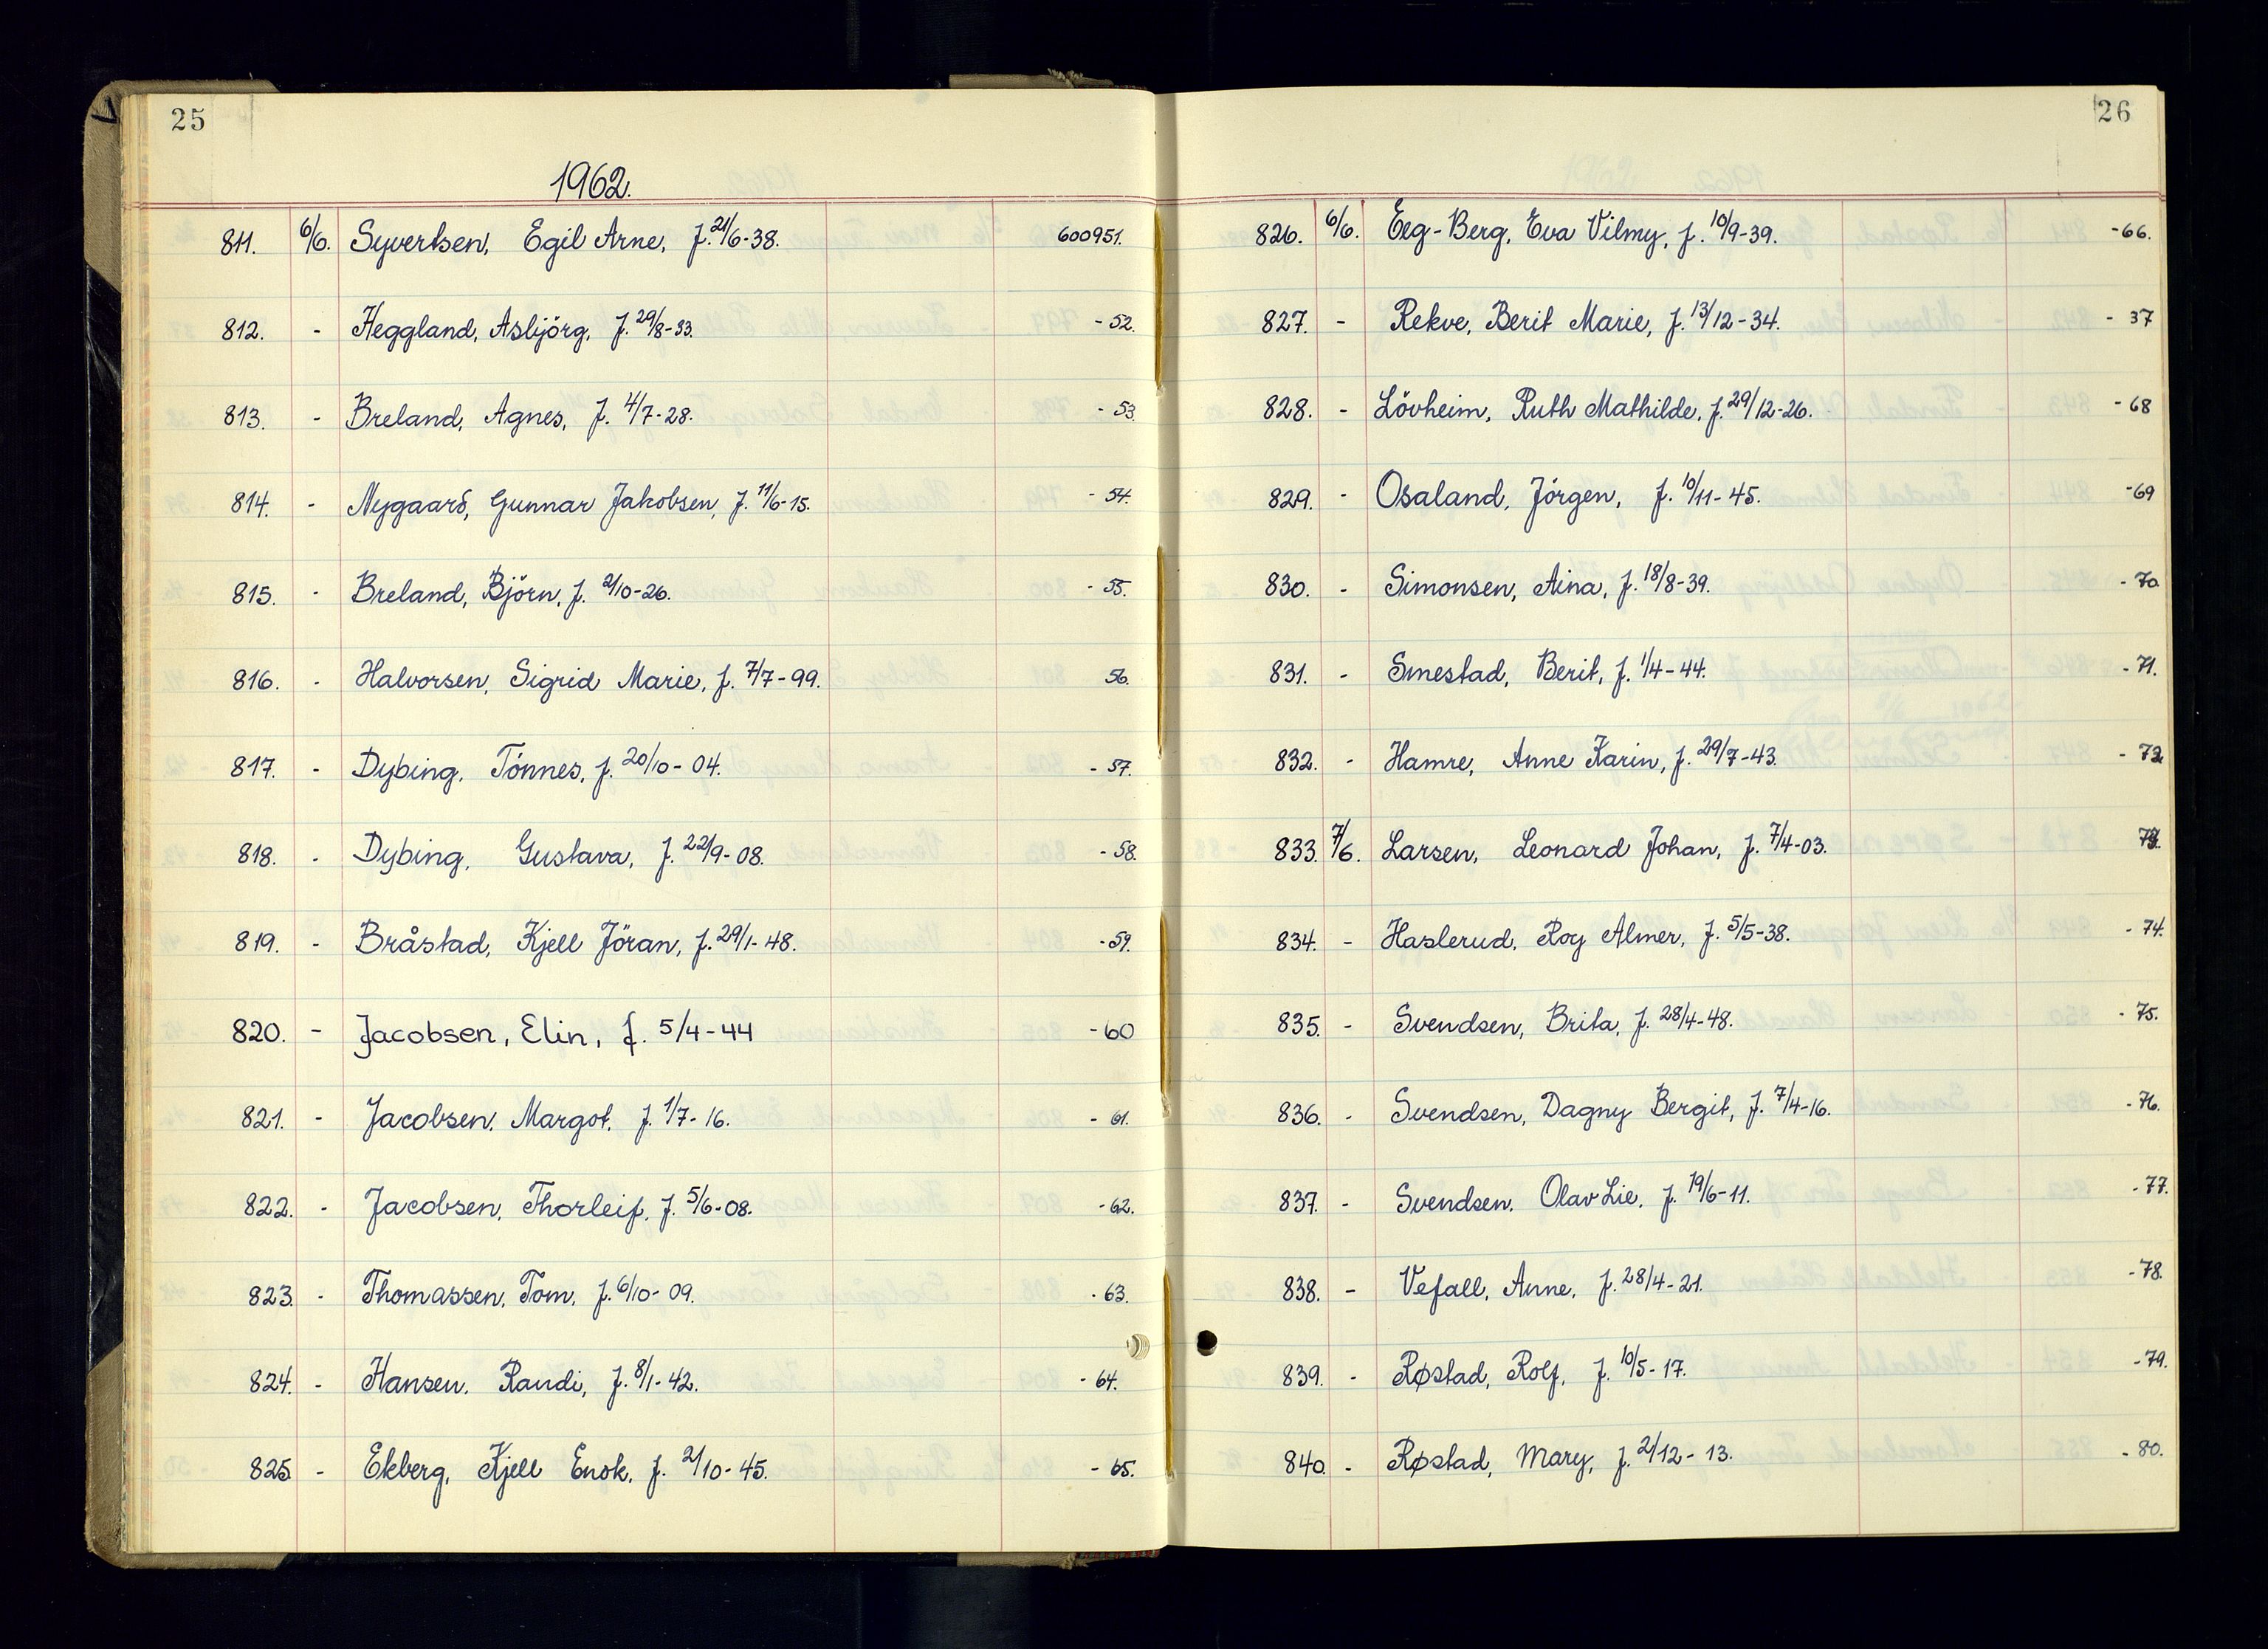 25
1962.
811. 6/6. Syvertsen, Egil Arne, f. 21/6-38. 600951.
812. - Heggland, Asbjörg, f. 29/8-33. -52.
813. - Breland, Agnes, f. 4/7-28. -53.
814. - Nygaard, Gunnar Jakobsen, f. 11/6-15. -54.
815. - Breland, Björn, f. 2/10-26. -55.
816. - Halvorsen, Sigrid Marie, f. 7/7-99. 56.
817. - Dybing, Tönnes, f. 20/10-04. -57.
818. - Dybing, Gustava, f. 22/9-08. -58.
819. - Bråstad, Kjell Jöran, f. 29/1-48. -59.
820. - Jacobsen, Elin, f. 5/4-44 -60
821. - Jacobsen, Margot, f. 1/7-16. -61.
822. - Jacobsen, Thorleif, f. 5/6-08. -62.
823. - Thomassen, Tom, f. 6/10-09. -63.
824. - Hansen, Randi, f. 8/1-42. -64.
825. - Ekberg, Kjell Enok, f. 21/10-45. -65.
26
826. 6/6. Eeg-Berg, Eva Vilmy, f. 10/9-39. -66.
827. - Rekve, Berit Marie, f. 13/12-34. -37
828. - Lövheim, Ruth Mathilde, f. 29/12-26. -68
829. - Osaland, Jörgen, f. 10/11-45. -69
830. - Simonsen, Aina, f. 18/8-39. -70
831. - Smestad, Berit, f. 1/4-44. -71.
832. - Hamre, Anne Karin, f. 29/7-43. -72
833. 7/6. Larsen, Leonard Johan, f. 7/4-03. 73.
834. - Haslerud, Roy Almer, f. 5/5-38. -74.
835. - Svendsen, Brita, f. 28/4-48. -75.
836. - Svendsen, Dagny Bergit, f. 7/4-16. -76.
837. - Svendsen, Olav Lie, f. 19/6-11. -77.
838. - Vefall, Anne, f. 28/4-21. -78.
839. - Røstad, Rolf, f. 10/5-17. -79.
840. - Røstad, Mary, f. 2/12-13. -80.